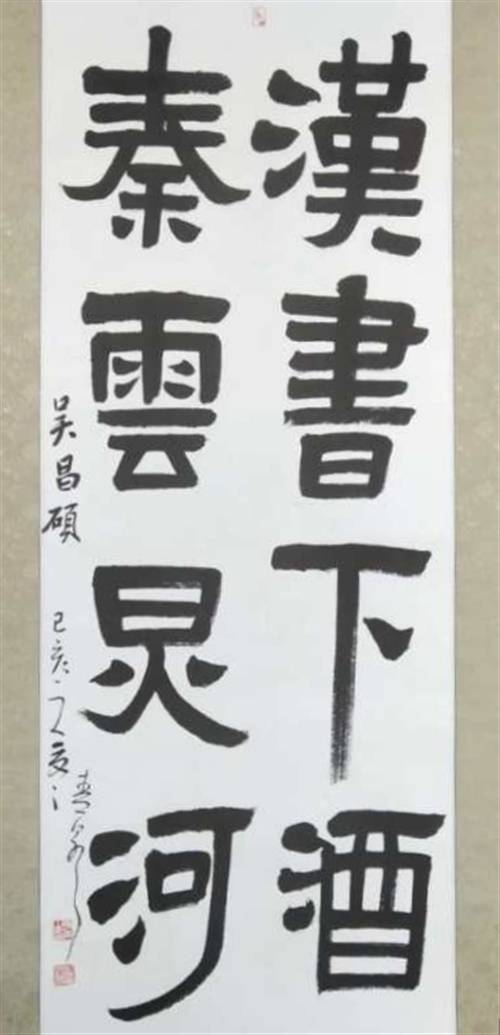 漢書下酒
秦雲炅河
吴昌碩
己亥